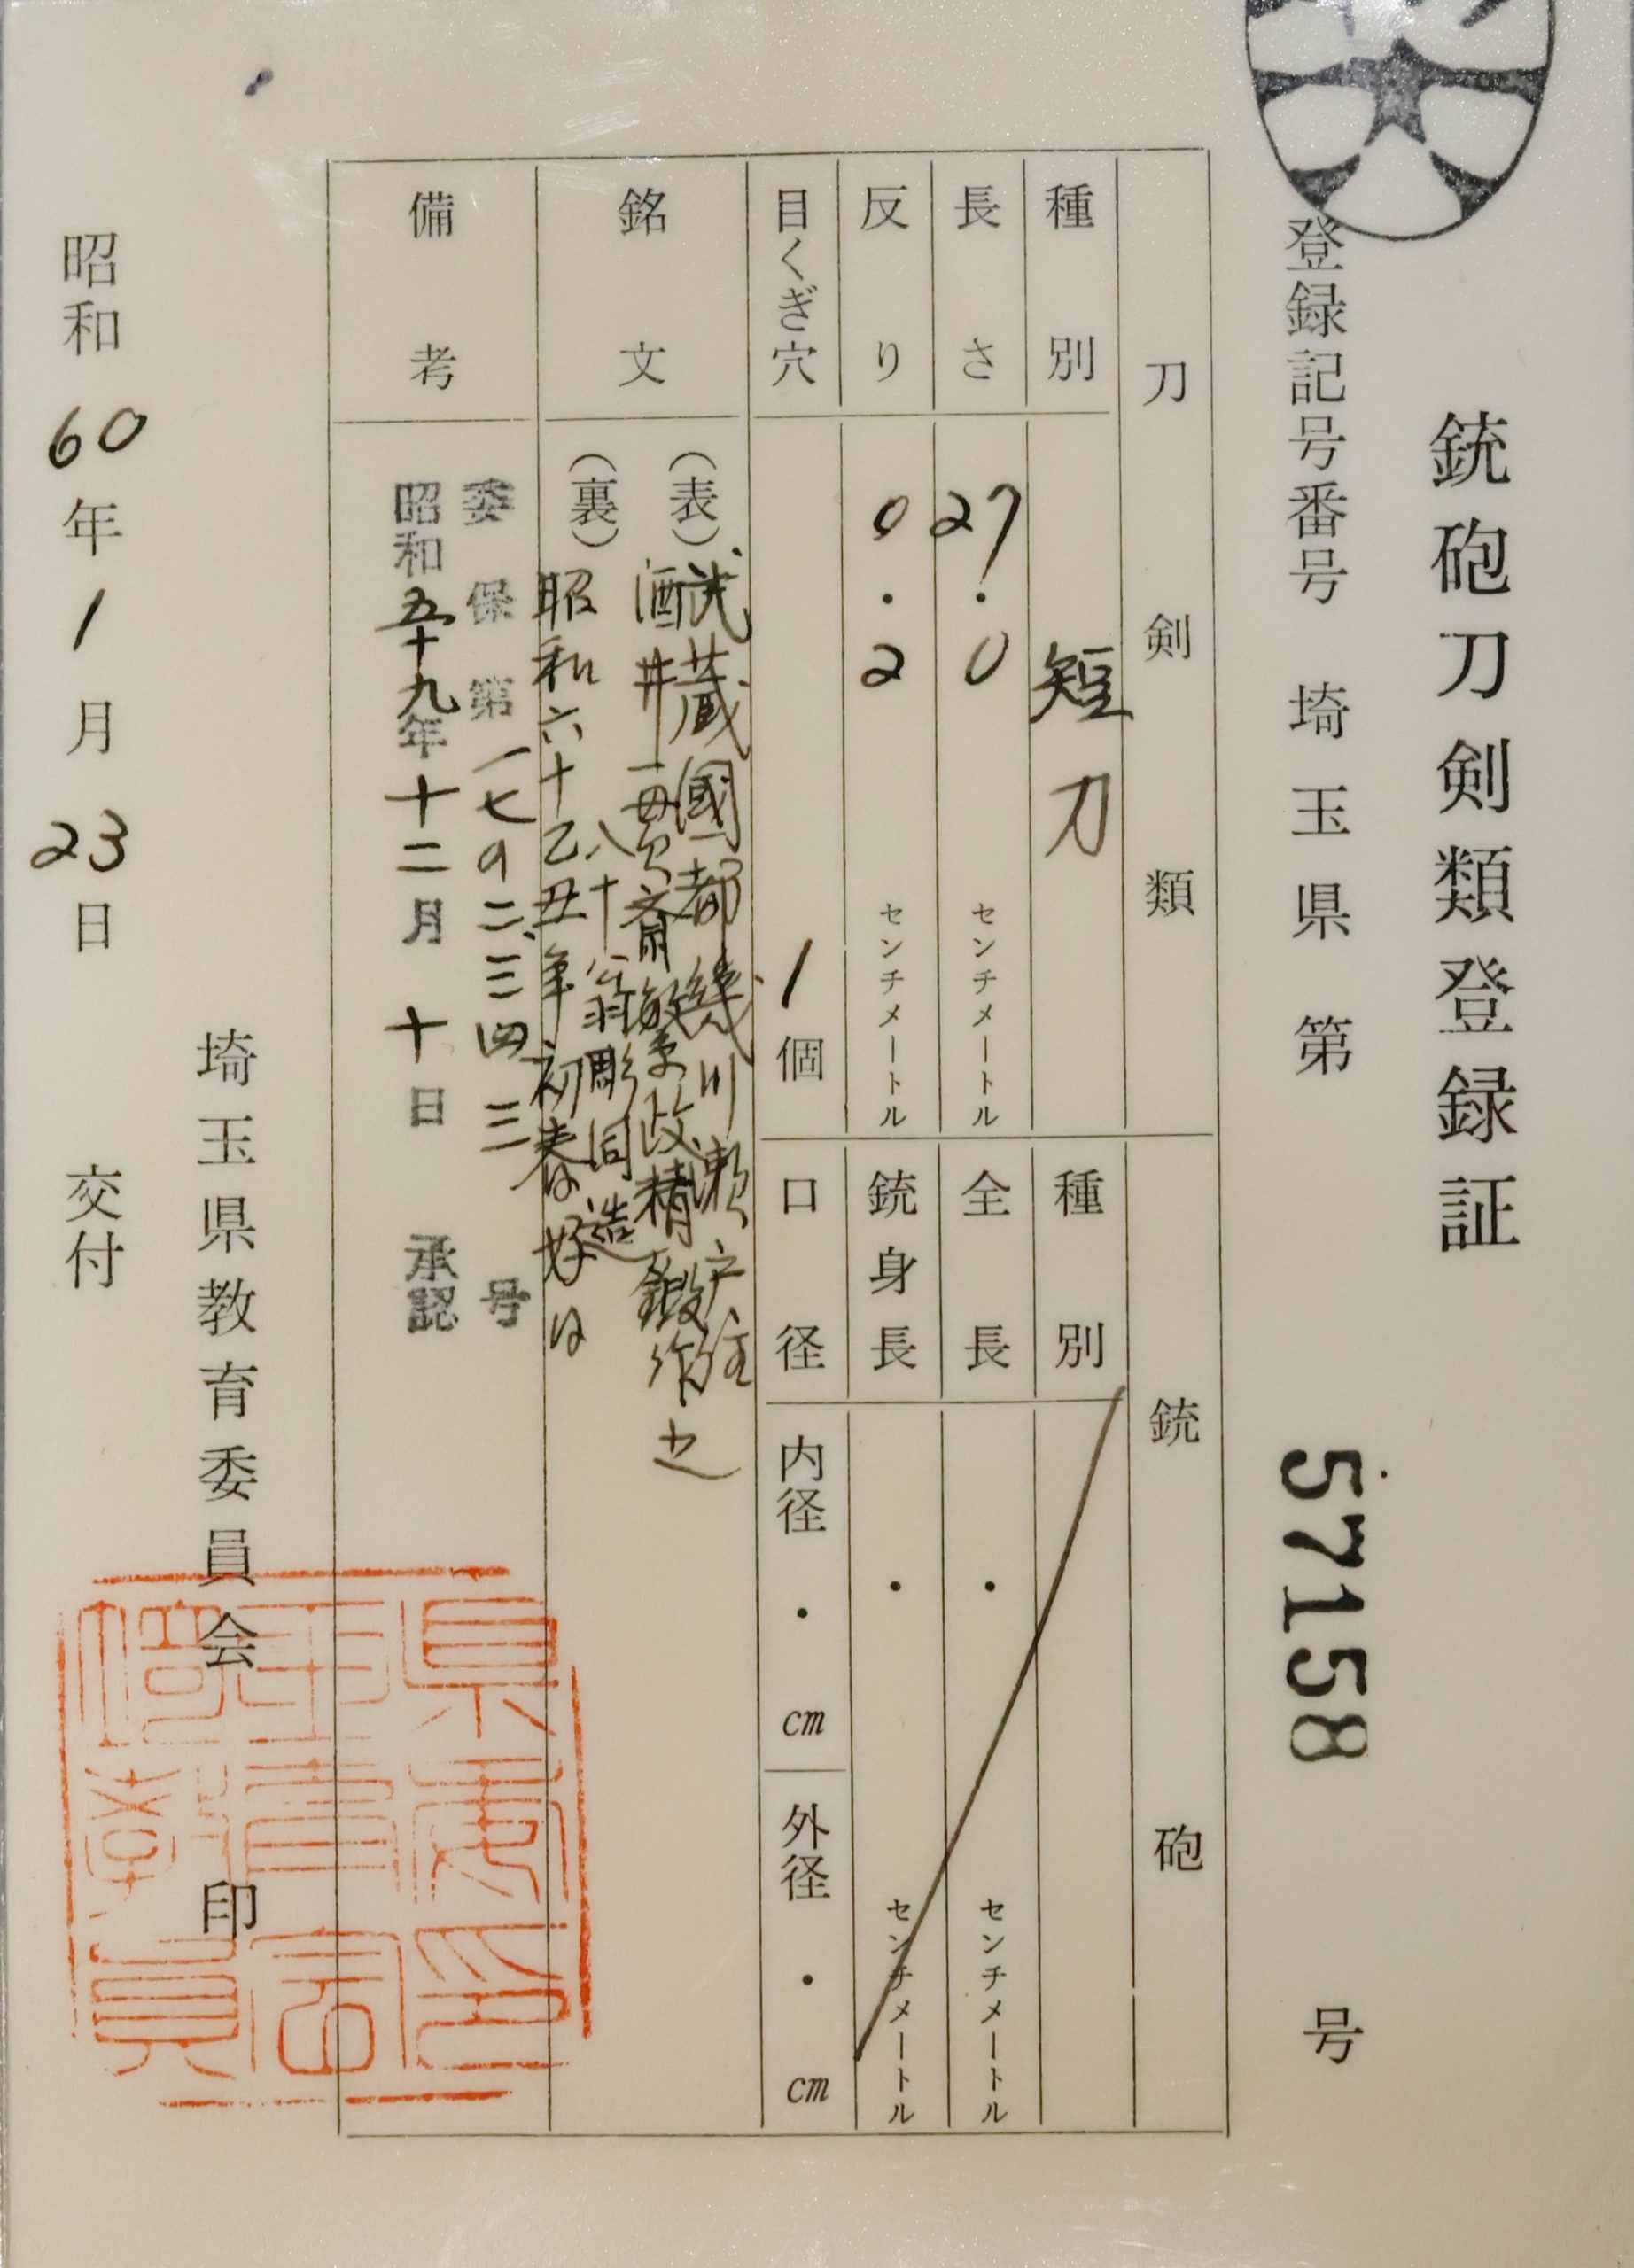 銃砲刀剣類登録証
登録記号番号 埼玉県 第 57158 号
刀剣類
種別 短刀
長さ 27.0 センチメートル
反り 0.2 センチメートル
目くぎ穴 1個
銘文
(表) 武蔵國都幾川瀬戸住
酒井一貫斎繁政精鍛作之
八十翁彫同造
(裏) 昭和六十乙丑年初春日好日
備考
委保第一七の二、三四三号
昭和五十九年十二月十日承認
銃砲
種別
全長 . センチメートル
銃身長 . センチメートル
口径 内径 . cm 外径 . cm
埼玉県教育委員会 印
昭和60年1月23日 交付